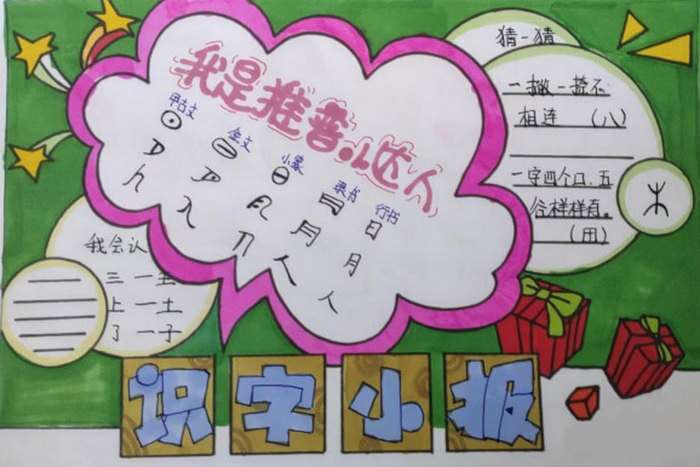 我是推普小达人
甲古文
金文
小篆
隶书
行书
日
月
月
人
人
猜一猜
一撇一捺不
相连 (八)
一字四个口,五
谷样样有。
(用)
木
我会认
三 一
上 一 土
了 一 子
识字小报